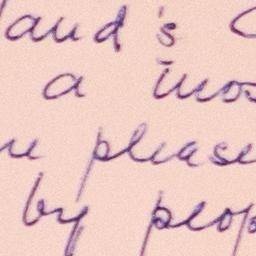 and's
a mos
please
by peop